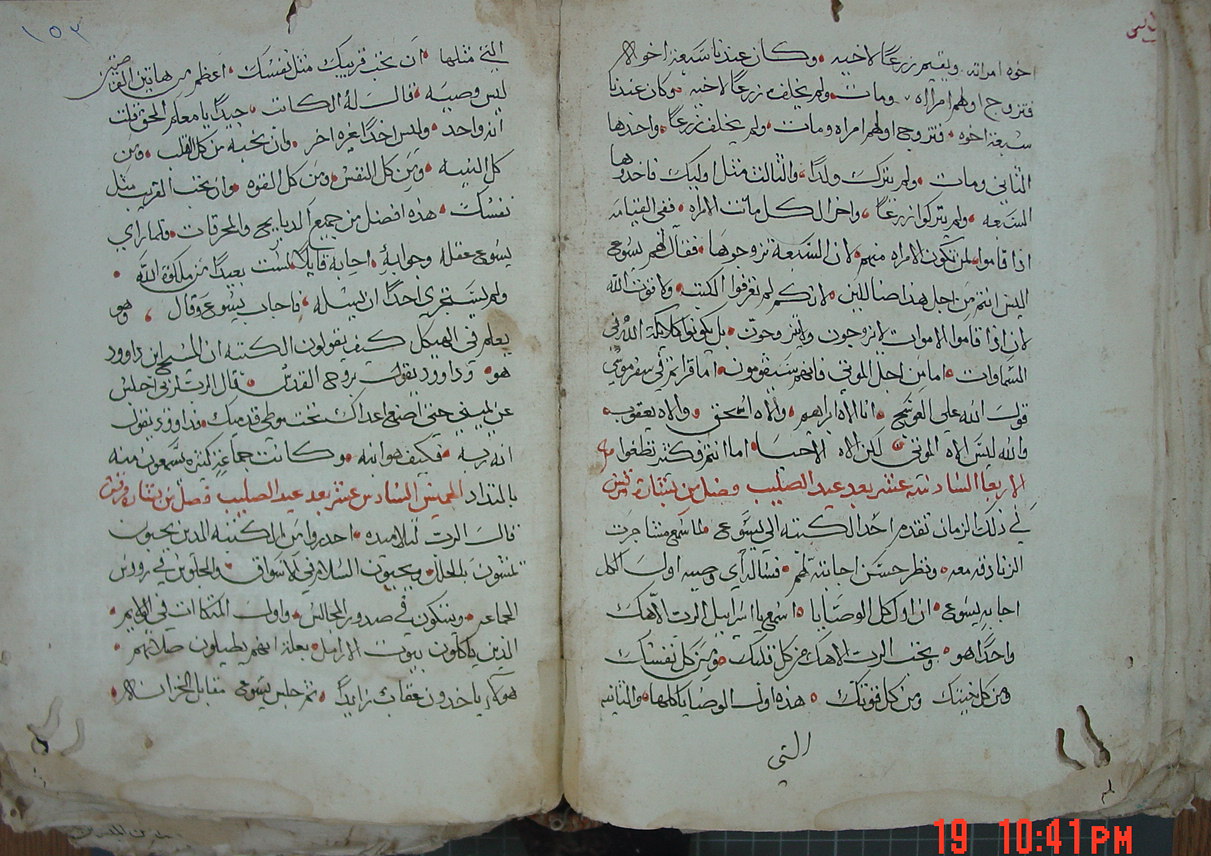 اخوه امراته ويقيم زرعًا لاخيه • وكان عندنا سبعة اخوة
فتزوج اولهم امراه ومات ولم يخلف زرعًا لاخيه • وكان عندنا
سبعة اخوه • فتزوج اولهم امراه ومات • ولم يخلف زرعًا • واخذها
الثاني ومات • ولم يترك ولدًا • والثالث مثل اوليك فاخذوها
السبعه • ولم يتركوا زرعًا • واخر الكل ماتت الامراه • ففي القيامه
اذا قاموا لمن تكون الامراه منهم • لان السبعة تزوجوها • فقال لهم يسوع
اليس انتم من اجل هذا ضالين • لانكم لم تعرفوا الكتب • ولا قوة الله
لان اذا قاموا الاموات لا يزوجون ولا يتزوجون • بل يكونوا كملايكة الله في
السماوات • اما من اجل الموتى فانهم سيقومون • اما قراتم في سفر موسى
قول الله على العوسج • انا الاه ابراهيم • والاه اسحق • والاه يعقوب •
والله ليس الاه الموتى • لكن الاه الاحيا • اما انتم فكثير تطغوا
الاربعا السادسة عشر بعد عيد الصليب فصل من بشارة مرقس
في ذلك الزمان تقدم احد الكتبه الى يسوع • لما سمع مشاجرت
الزنادقه معه • ونظر حسن اجابته لهم • فساله اي وصيه اول الكل
اجابه يسوع • ان اول كل الوصايا • اسمع يا اسراييل الرب الاهك
واحدًا هو • وتحب الرب الاهك من كل قلبك • ومن كل نفسك
ومن كل نيتك ومن كل قوتك • هذه اول الوصايا كلها • والثانيه
التي
١٥٢
التي مثلها • ان تحب قريبك مثل نفسك • اعظم من هاتين الوصيتين
ليس وصيه • قال له الكاتب • جيدًا يا معلم الحق قلت
انه واحد • وليس احدًا غيره اخر • وان تحبه من كل القلب • ومن
كل النيه • ومن كل النفس • ومن كل القوه • وان تحب القريب مثل
نفسك • هذه افضل من جميع الدبايح والمحرقات • فلما راي
يسوع عقله وجوابه • اجابه قايلًا لست بعيدًا من ملكوة الله •
ولم يستجري احدًا ان يسله • فاجاب يسوع وقال • وهو
يعلم في الهيكل كيف يقولون الكتبه ان المسيح ابن داوود
هو • وداوود يقول بروح القدس • قال الرب لربي اجلس
عن يميني حتى اضع اعداك تحت موطي قدميك • فداوود يقول
انه ربه • فكيف هو ابنه • وكانت جماعة كثيره يسمعون منه
بالتداد الخميس السادس عشر بعد عيد الصليب فصل من بشارة مرقس
قال الرب لتلاميده • احدروا من الكتبه الدين يحبون
تمشون بالحلل • ويحبون السلام في الاسواق • والجلوس في روس
المجامع • ويتكون في صدور المجالس • واول المتكات في الولايم •
الذين ياكلون بيوت الارامل • بعلة انهم يطيلون صلاتهم •
هولاء ياخدون عقاب زايدًا • ثم جلس يسوع مقابل الخزانة •
19 10:41 PM